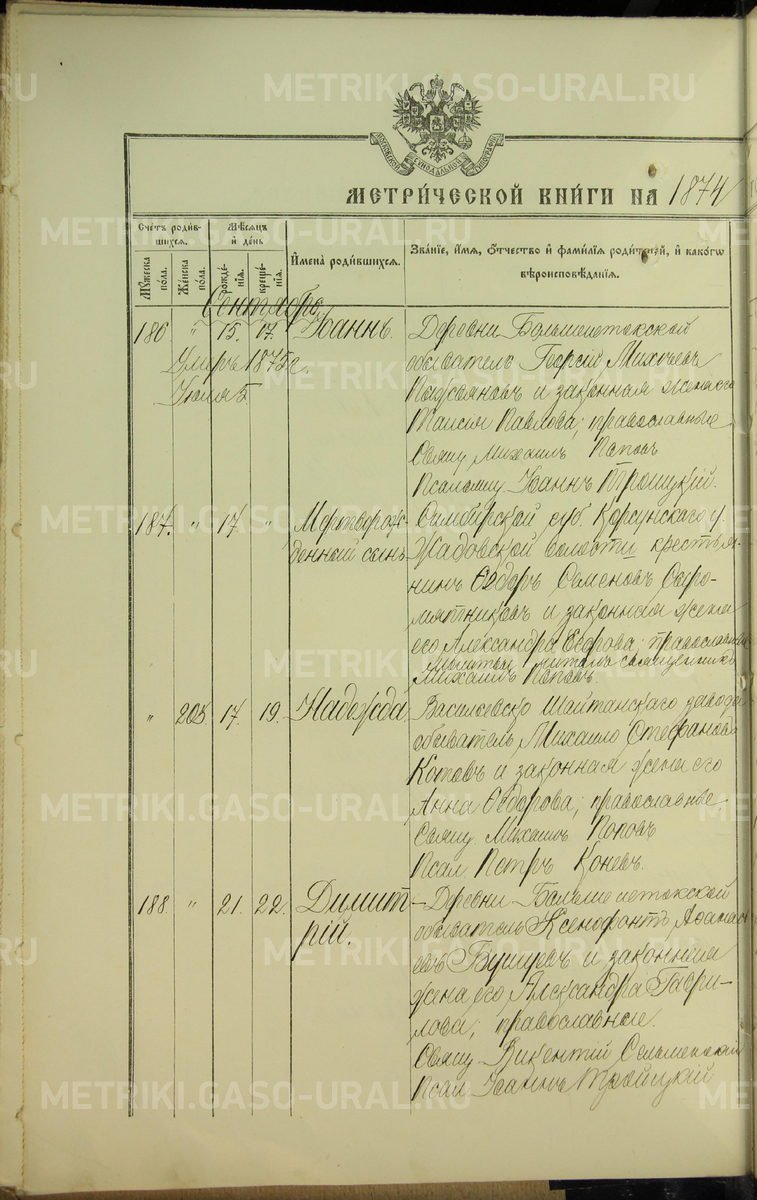 METRIKI.GASO-URAL.RU
МОСКОВСКОЙ СѴНОДАЛЬНОЙ ТИПОГРАФІИ
МЕТРИ́ЧЕСКОЙ КНИ́ГИ НА 1874
Сче́тъ роди́вшихся.
Мꙋ́жеска по́ла.
Же́нска по́ла.
Мѣ́сяцъ и҆ де́нь
рожде́нїя.
креще́нїя.
И҆мена̀ роди́вшихся.
Зва́нїе, и҆́мя, ѻ҆́тчество и҆ фами́лїя роди́телей, и҆ како́гѡ вѣроисповѣ́данїя.
Сентябрь
186. " 15. 17. Іоаннъ.
Умеръ 1875 г.
Іюля 5
Деревни Большеистокской
обыватель Георгій Михеевъ
и законная жена его
Таисія Павлова; православные
Свящ Михаилъ Поповъ
Псаломщ. Іоаннъ Троицкій.
187. " 17 " Мертворож-
денный сынъ
Симбирской губ. Корсунскаго у.
Жадовской волости крестья-
нинъ Ѳедоръ Семеновъ Сыро-
мятниковъ и законная жена
его Александра Егорова; православные
Молитву читалъ священникъ
Михаилъ Поповъ.
" 205 17. 19. Надежда
Васильевско Шайтанскаго завода
обыватель Михаило Стефановъ
Котовъ и законная жена его
Анна Ѳедорова; православные
Свящ Михаилъ Поповъ
Псал Петръ Коневъ.
188. " 21. 22. Димит-
рій.
Деревни Больше истокской
обыватель Ксенофонтъ Аѳанась
евъ и законная
жена его Александра Гаври-
лова; православные.
Свящ Викентій
Псал Іоаннъ Троицкій